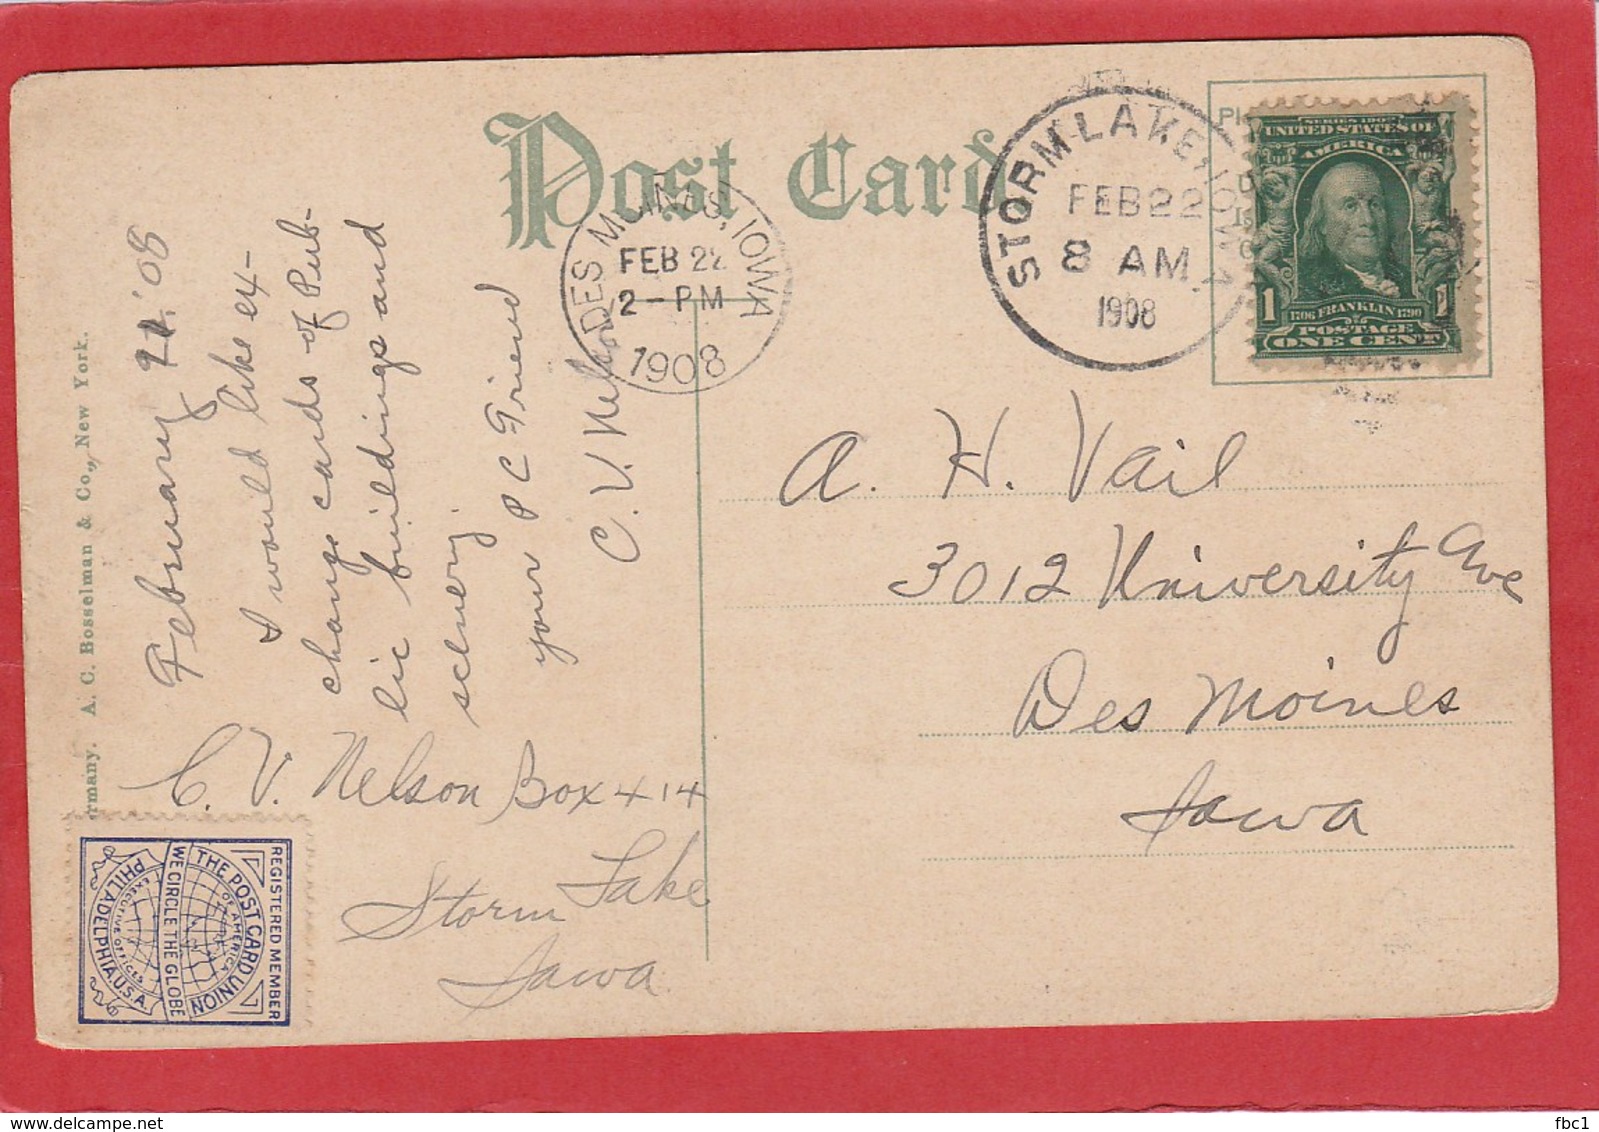 Post Card
STORM LAKE, IOWA
FEB 22
8 AM
1908
DES MOINES, IOWA
FEB 22
2-PM
1908
SERIES 1902
UNITED STATES OF
AMERICA
1706 FRANKLIN 1790
1
POSTAGE
ONE CENT
A. H. Vail
3012 University Ave
Des Moines
Iowa
February '08
I would like ex-
change cards of Pub-
lic buildings and
scenery
your P C Friend
C. V. Nelson
C. V. Nelson Box 414
Storm Lake
Iowa
rmany. A. C. Bosselman & Co., New York.
REGISTERED MEMBER
THE POST CARD UNION
OF AMERICA
WE CIRCLE THE GLOBE
EXECUTIVE OFFICES
PHILADELPHIA, U.S.A.
www.delcampe.net
fbc1